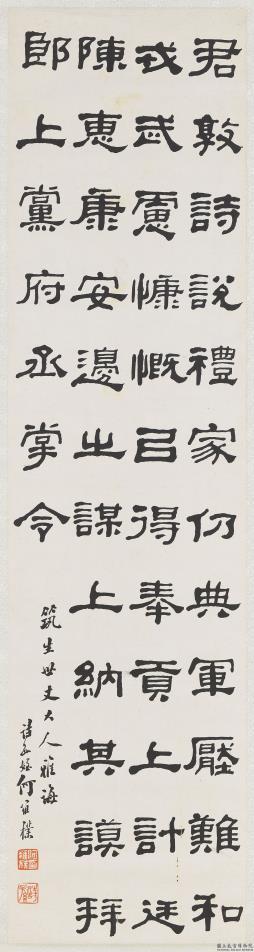 君敦詩說禮家仍典軍壓難和
戎武慮慷慨已得奉貢上計廷
陳惠康安邊之謀上納其謨拜
郎上黨府丞掌令
筑生世丈大人雅誨
何維樸
國立故宮博物院